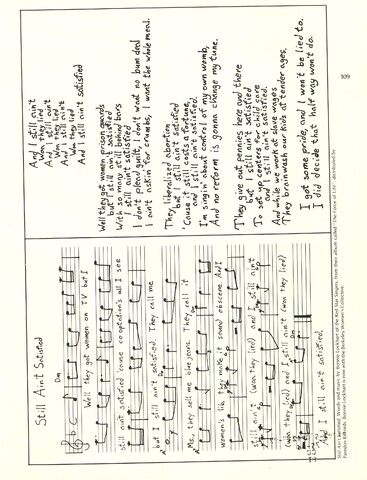 Still Ain't Satisfied
Dm
Well they got women on TV but I
still ain't satisfied 'cause co-optation's all I see
but I still ain't satisfied. They call me
Ms., they sell me blue jeans. They call it
women's lib, they make it sound obscene. And I
still ain't (won they lied) and I still ain't
(won they lied) and I still ain't (won they lied)
And I still ain't satisfied.
And I still ain't
Won they lied
And I still ain't
Won they lied
And I still ain't
Won they lied
And still ain't satisfied
Well they got women prison guards
but I still ain't satisfied
With so many still behind bars
I still ain't satisfied
I don't plead guilt, I don't want no bum deal
I ain't askin for crumbs, I want the whole meal.
They liberalized abortion
but I still ain't satisfied
'Cause it still costs a fortune,
and I still ain't satisfied.
I'm singin' about control of my own womb,
And no reform is gonna change my tune.
They give out pennies here and there
but I still ain't satisfied
To set up centers for child care
and I still ain't satisfied.
And while we work at slave wages
They brainwash our kids at tender ages.
I got some pride, and I won't be lied to.
I did decide that half way won't do.
Still Ain't Satisfied: Words and music by Bonnie Lockhart of the Red Star Singers, from their album called "The Force of Life," distributed by
Paredon Records. Bonnie Lockhart is now with the Berkeley Women's Collective
109